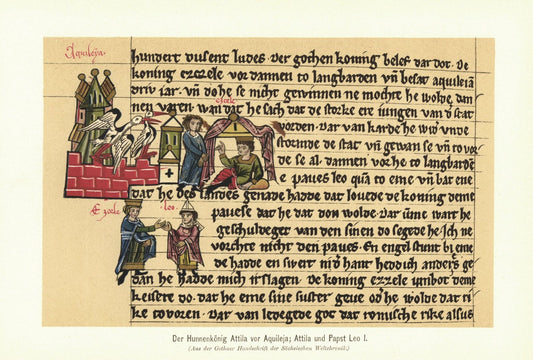 Aquileja
hundert dusent ludes. Der gothen koning belef dar dot. De
koning ezzele vor dannen to langbarden vñ besat aquileiā
driv iar. vñ do he se nicht gewinnen ne mochte he wolde dan
nen varen. wan dat he sach dat de storke ere iungen van d' stat
vorden. Dar van karde he wid' unde
stormde de stat vñ gewan se vñ to vor
de se al. dannen vorhe to langbarde
paves leo quā to eme vñ bat eme
dat he des landes genade hadde dat lovede de koning deme
Ezele
leo.
pavese dat he dar don wolde. Dar ūme wart he
geschuldeget van den sinen do segede he. Ich ne
vorchte nicht den paves. En engel stunt bi eme
de hadde en swert
dan he hadde mich irslagen. De koning ezzele umbot deme
keisere do. dat he eme sine suster geve od' he wolde dat ri
ke to voren. Dar van ledegede got dat romische rike alsus
Der Hunnenkönig Attila vor Aquileja; Attila und Papst Leo I.
(Aus der Gothaer Handschrift der Sächsischen Weltchronik.)